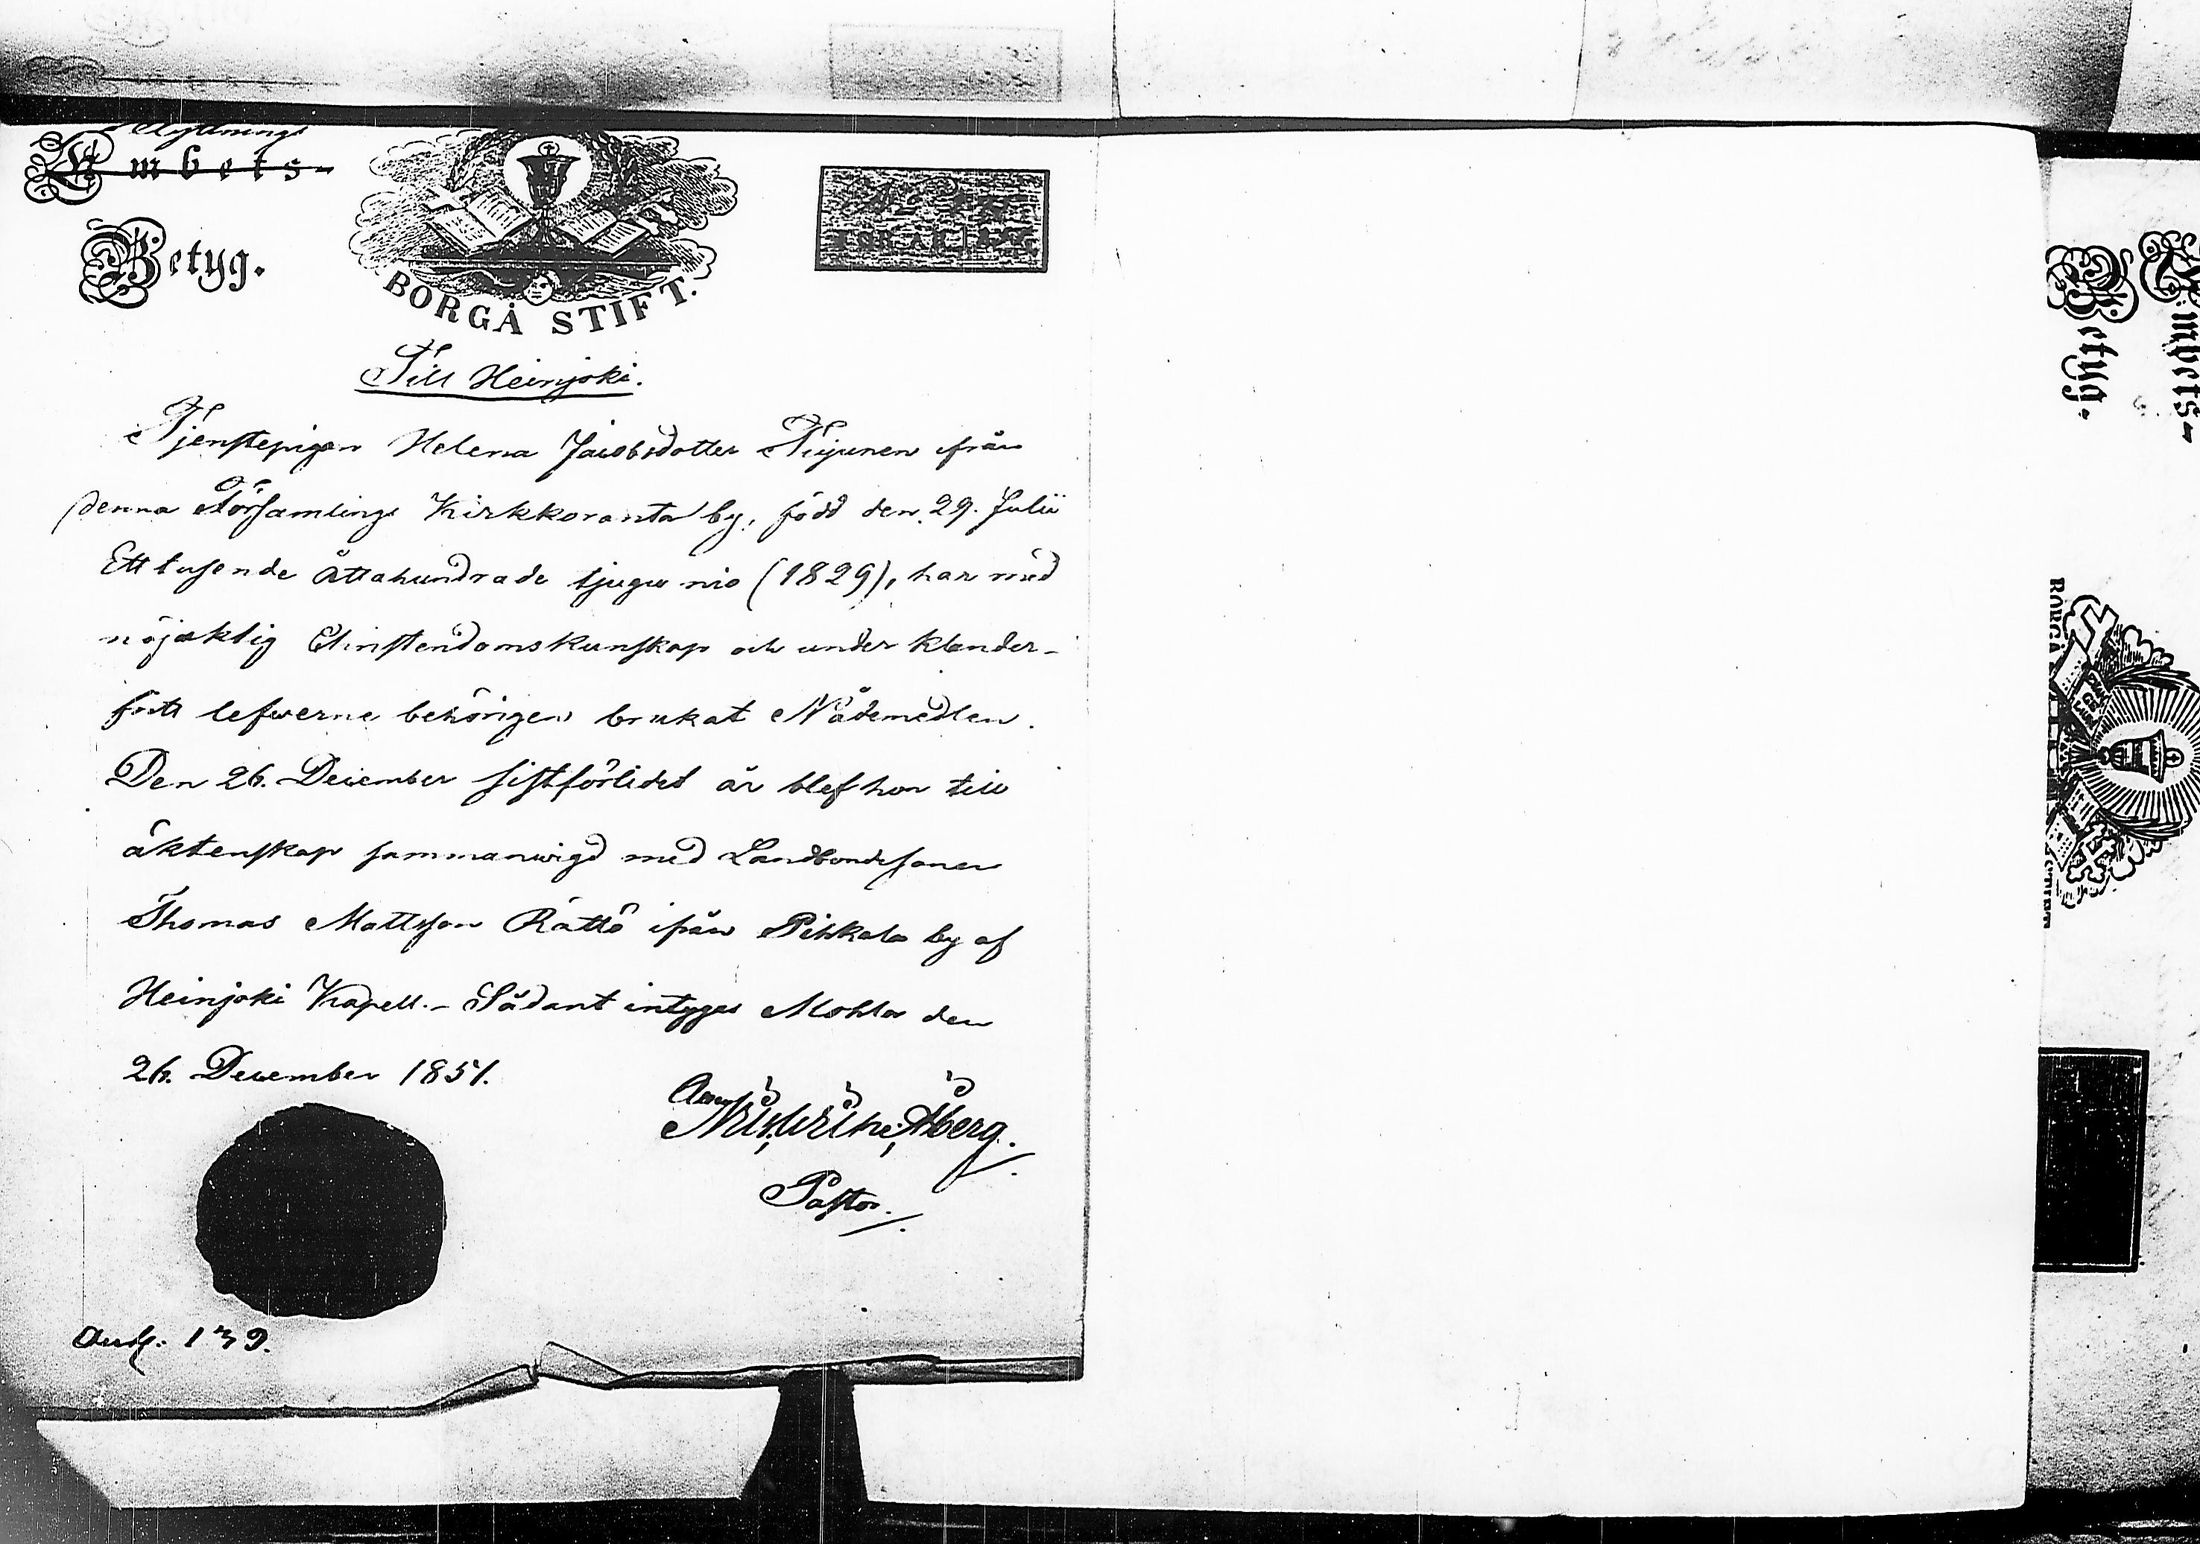 flyttnings
Embets-
Betyg.
BORGÅ STIFT.
Till Heinjoki.
Tjenstepigan Helena Jacobsdotter Tiijunen ifrån
denna Församlings Kirkkoranta by, född den 29. Julii
Ett tusende Åttahundrade tjugu nio (1829), har med
nöjaktig Christendomskunskap och under klander-
fritt lefverne behörigen brukat Nådemedlen.
Den 26. December sistförlidet år blef hon till
äktenskap sammanvigd med Landbondesonen
Thomas Mattsson Rättö ifrån Pihkala by af
Heinjoki Kapell. - Sådant intygas Mohla den
26. December 1851.
Nils Wilh. Åberg.
Pastor.
139.
Embets-
Betyg.
BORGÅ STIFT